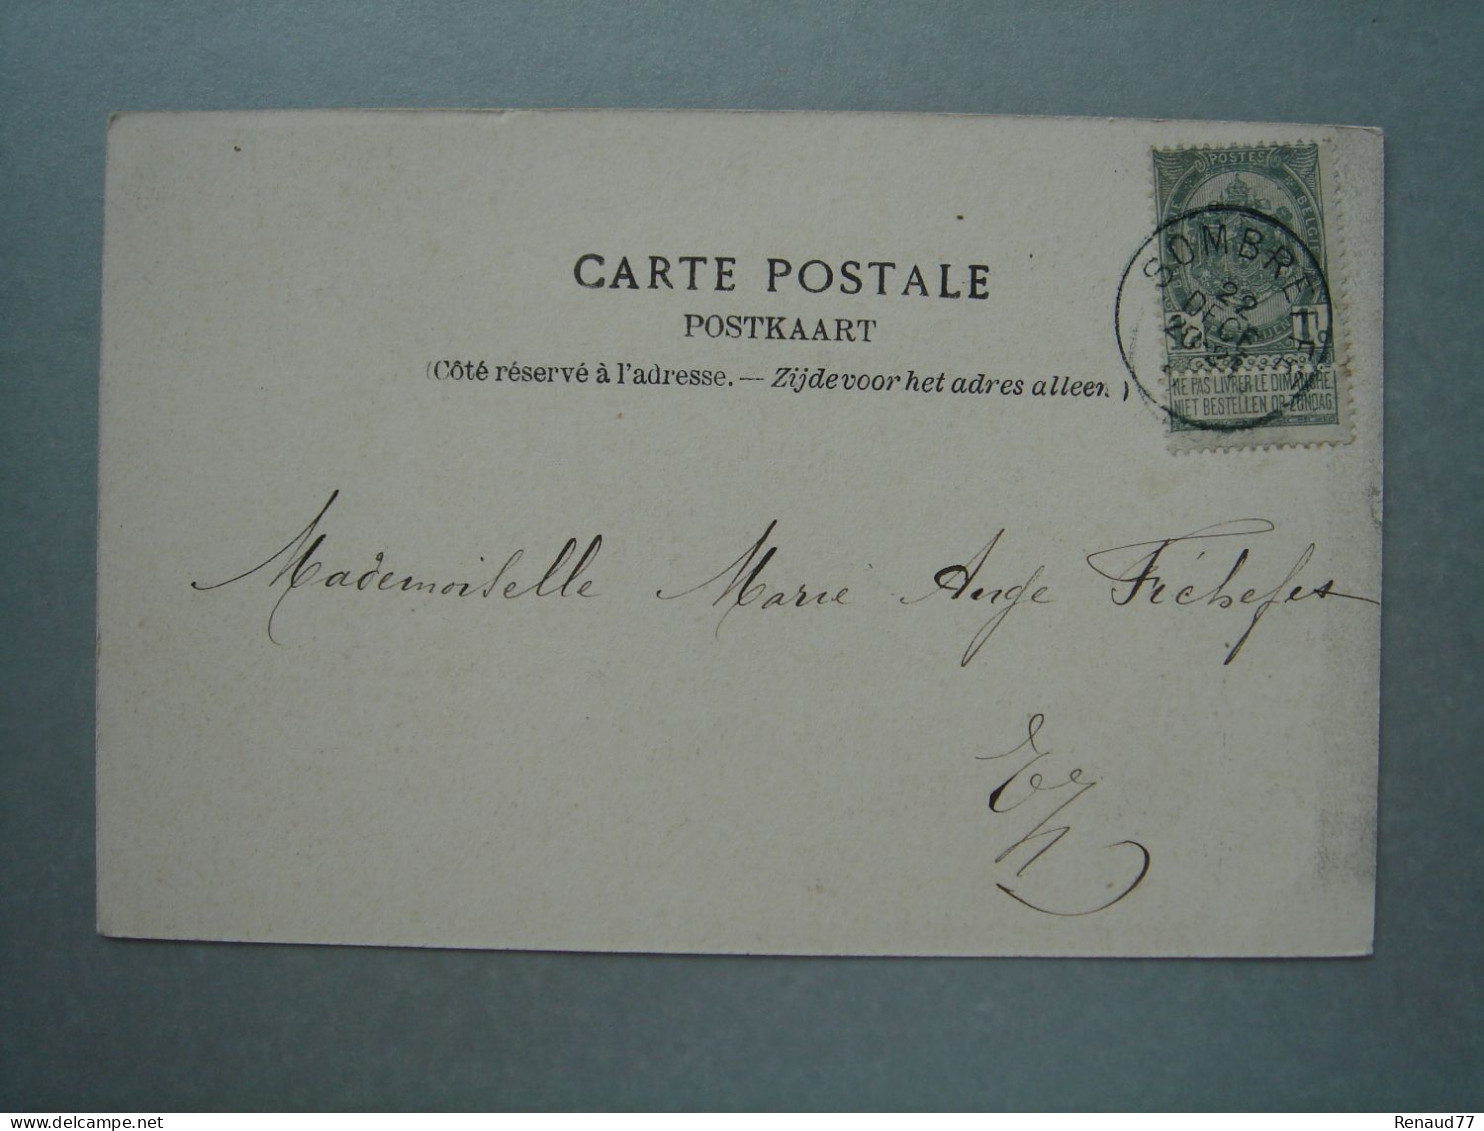 CARTE POSTALE
POSTKAART
(Côté réservé à l'adresse. — Zijde voor het adres alleen)
POSTES
SOMBREFFE
22
DÉCE
NE PAS LIVRER LE DIMANCHE
NIET BESTELLEN OP ZONDAG
Mademoiselle Marie Ange
E/V
delcampe.net
Renaud77